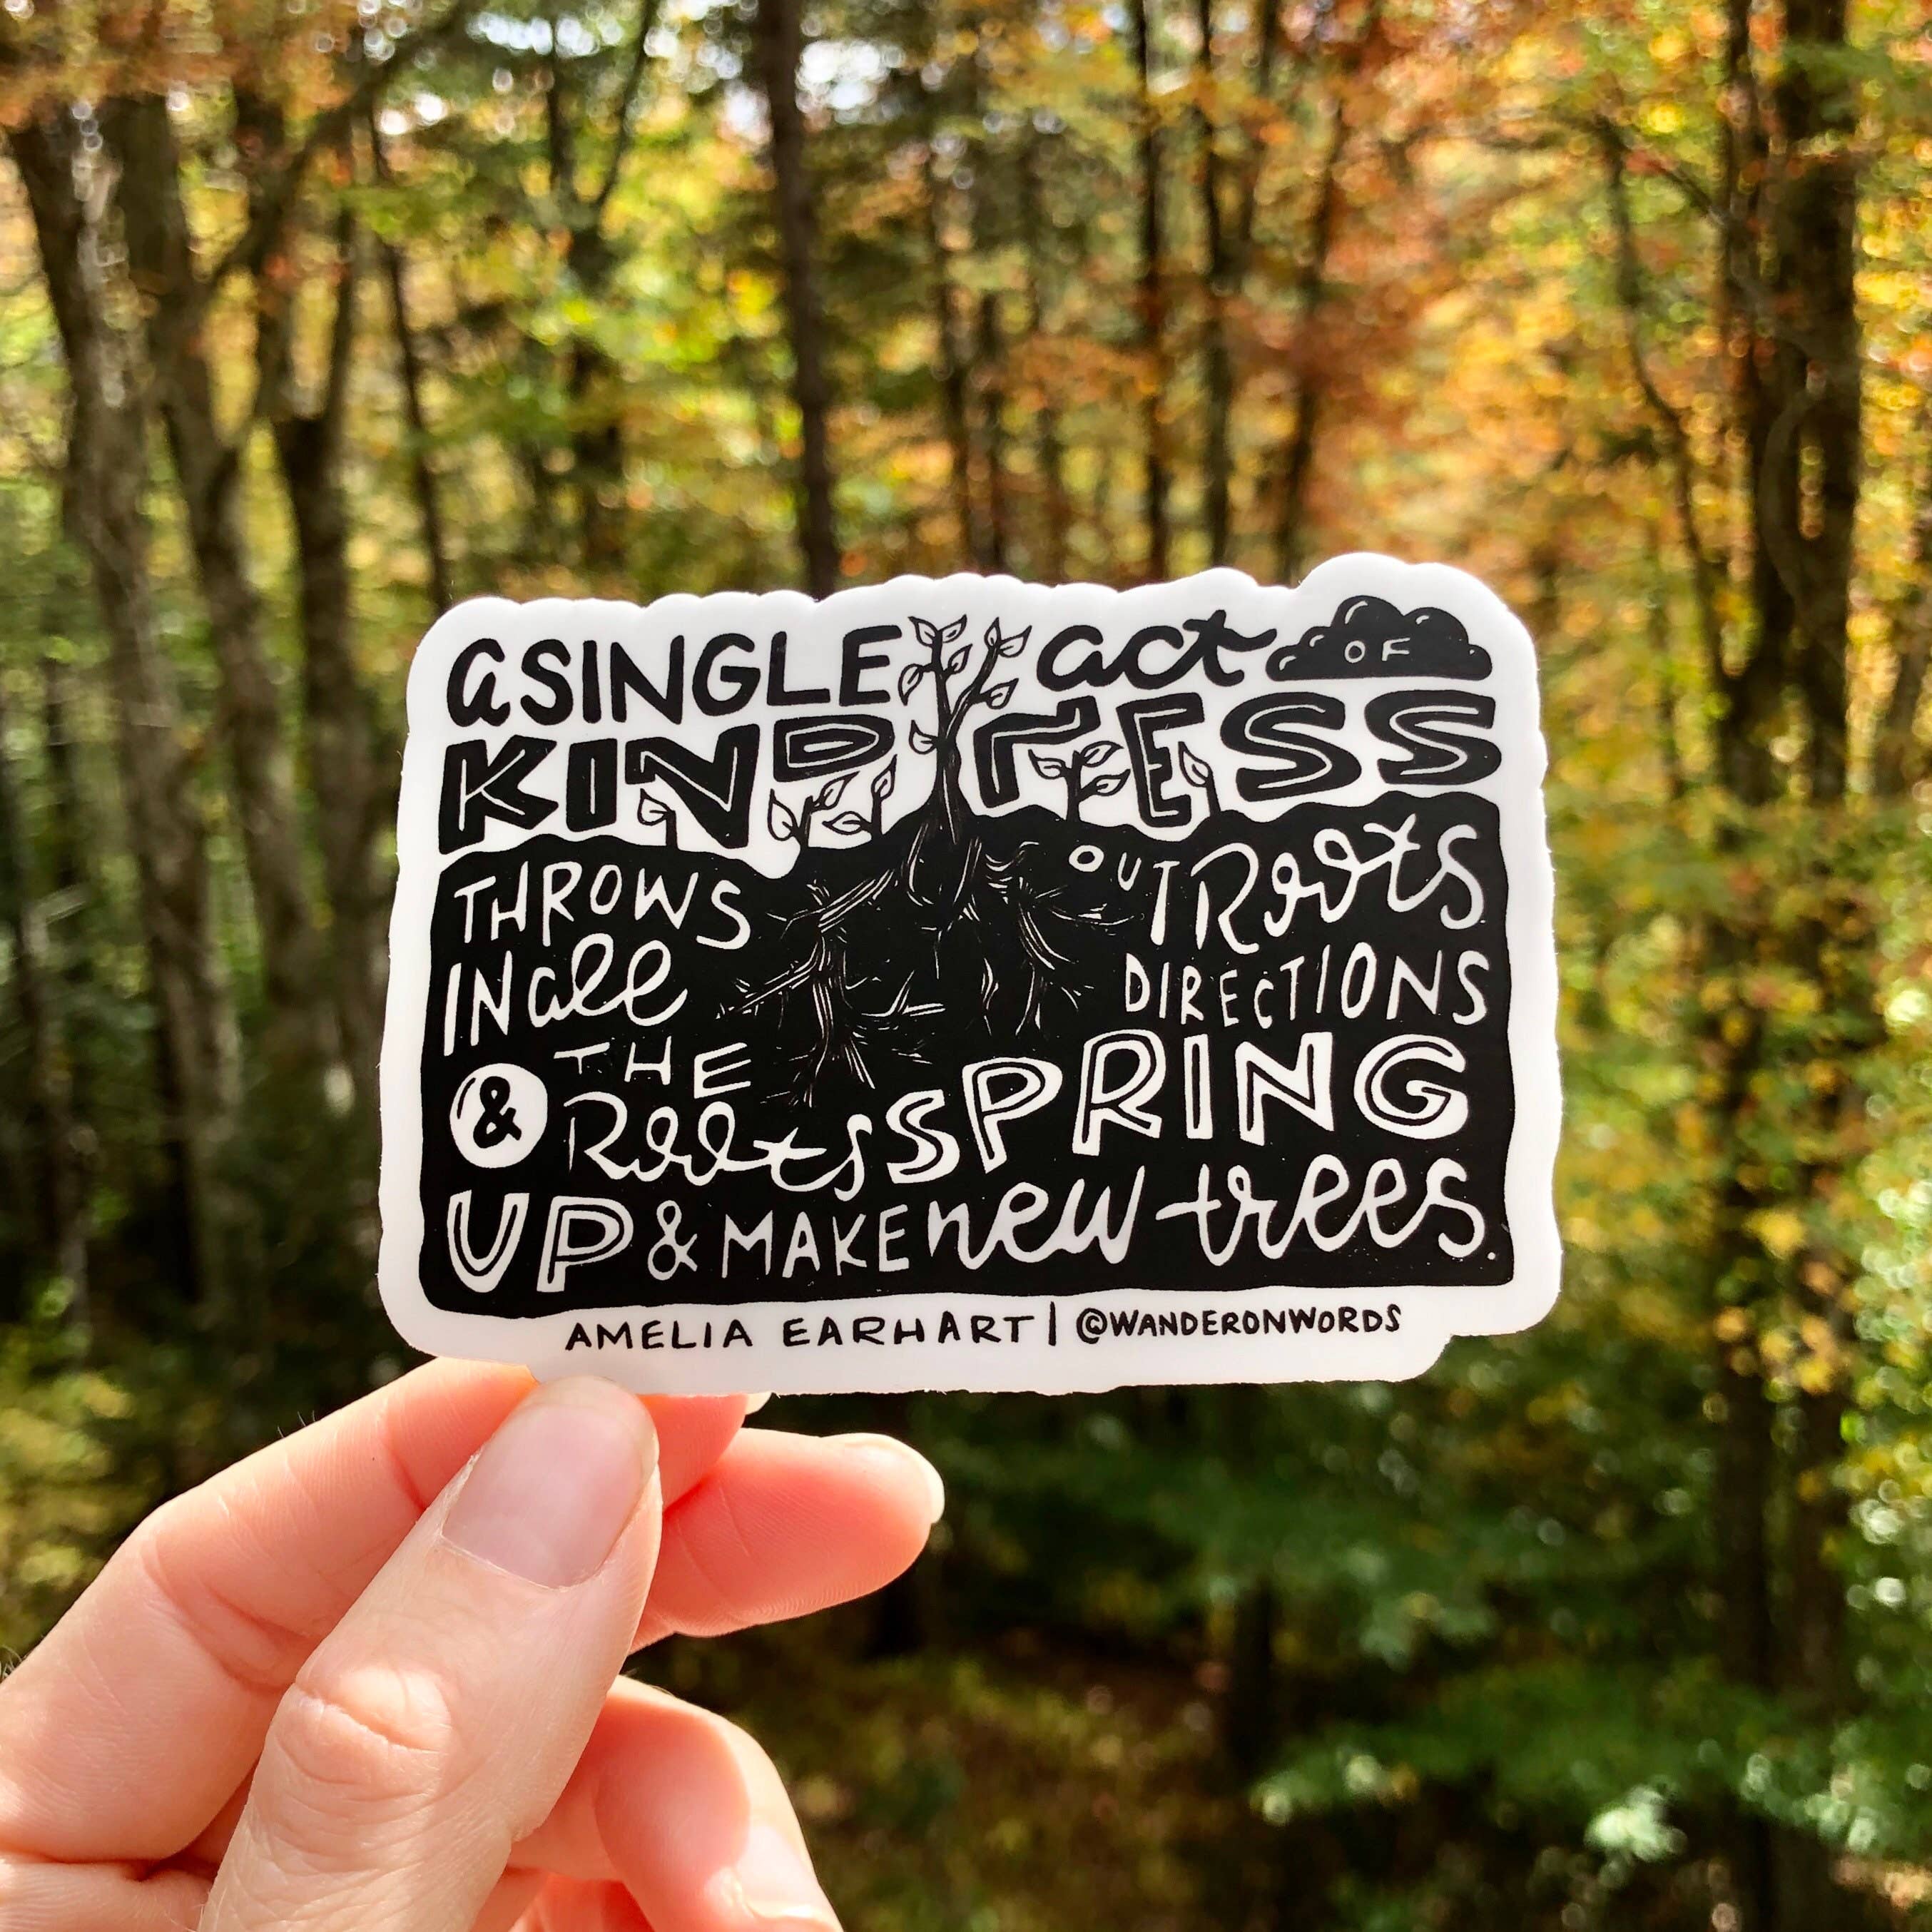 a SINGLE act OF
KINDNESS
THROWS OUT Roots
IN all DIRECTIONS
& THE Roots SPRING
UP & MAKE new trees.
AMELIA EARHART | @WANDERONWORDS